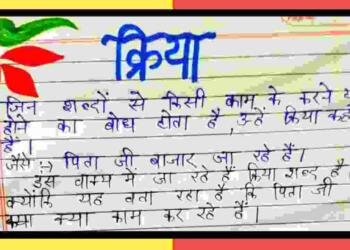 क्रिया
जिन शब्दों से किसी काम के करने
होने का बोध होता है, उन्हें क्रिया
हैं।
जैसे :- पिता जी बाजार जा रहे हैं।
इस वाक्य में जा रहे हैं, क्रिया शब्द है
क्योंकि यह बता रहा है कि पिता जी
क्या काम कर रहे हैं।